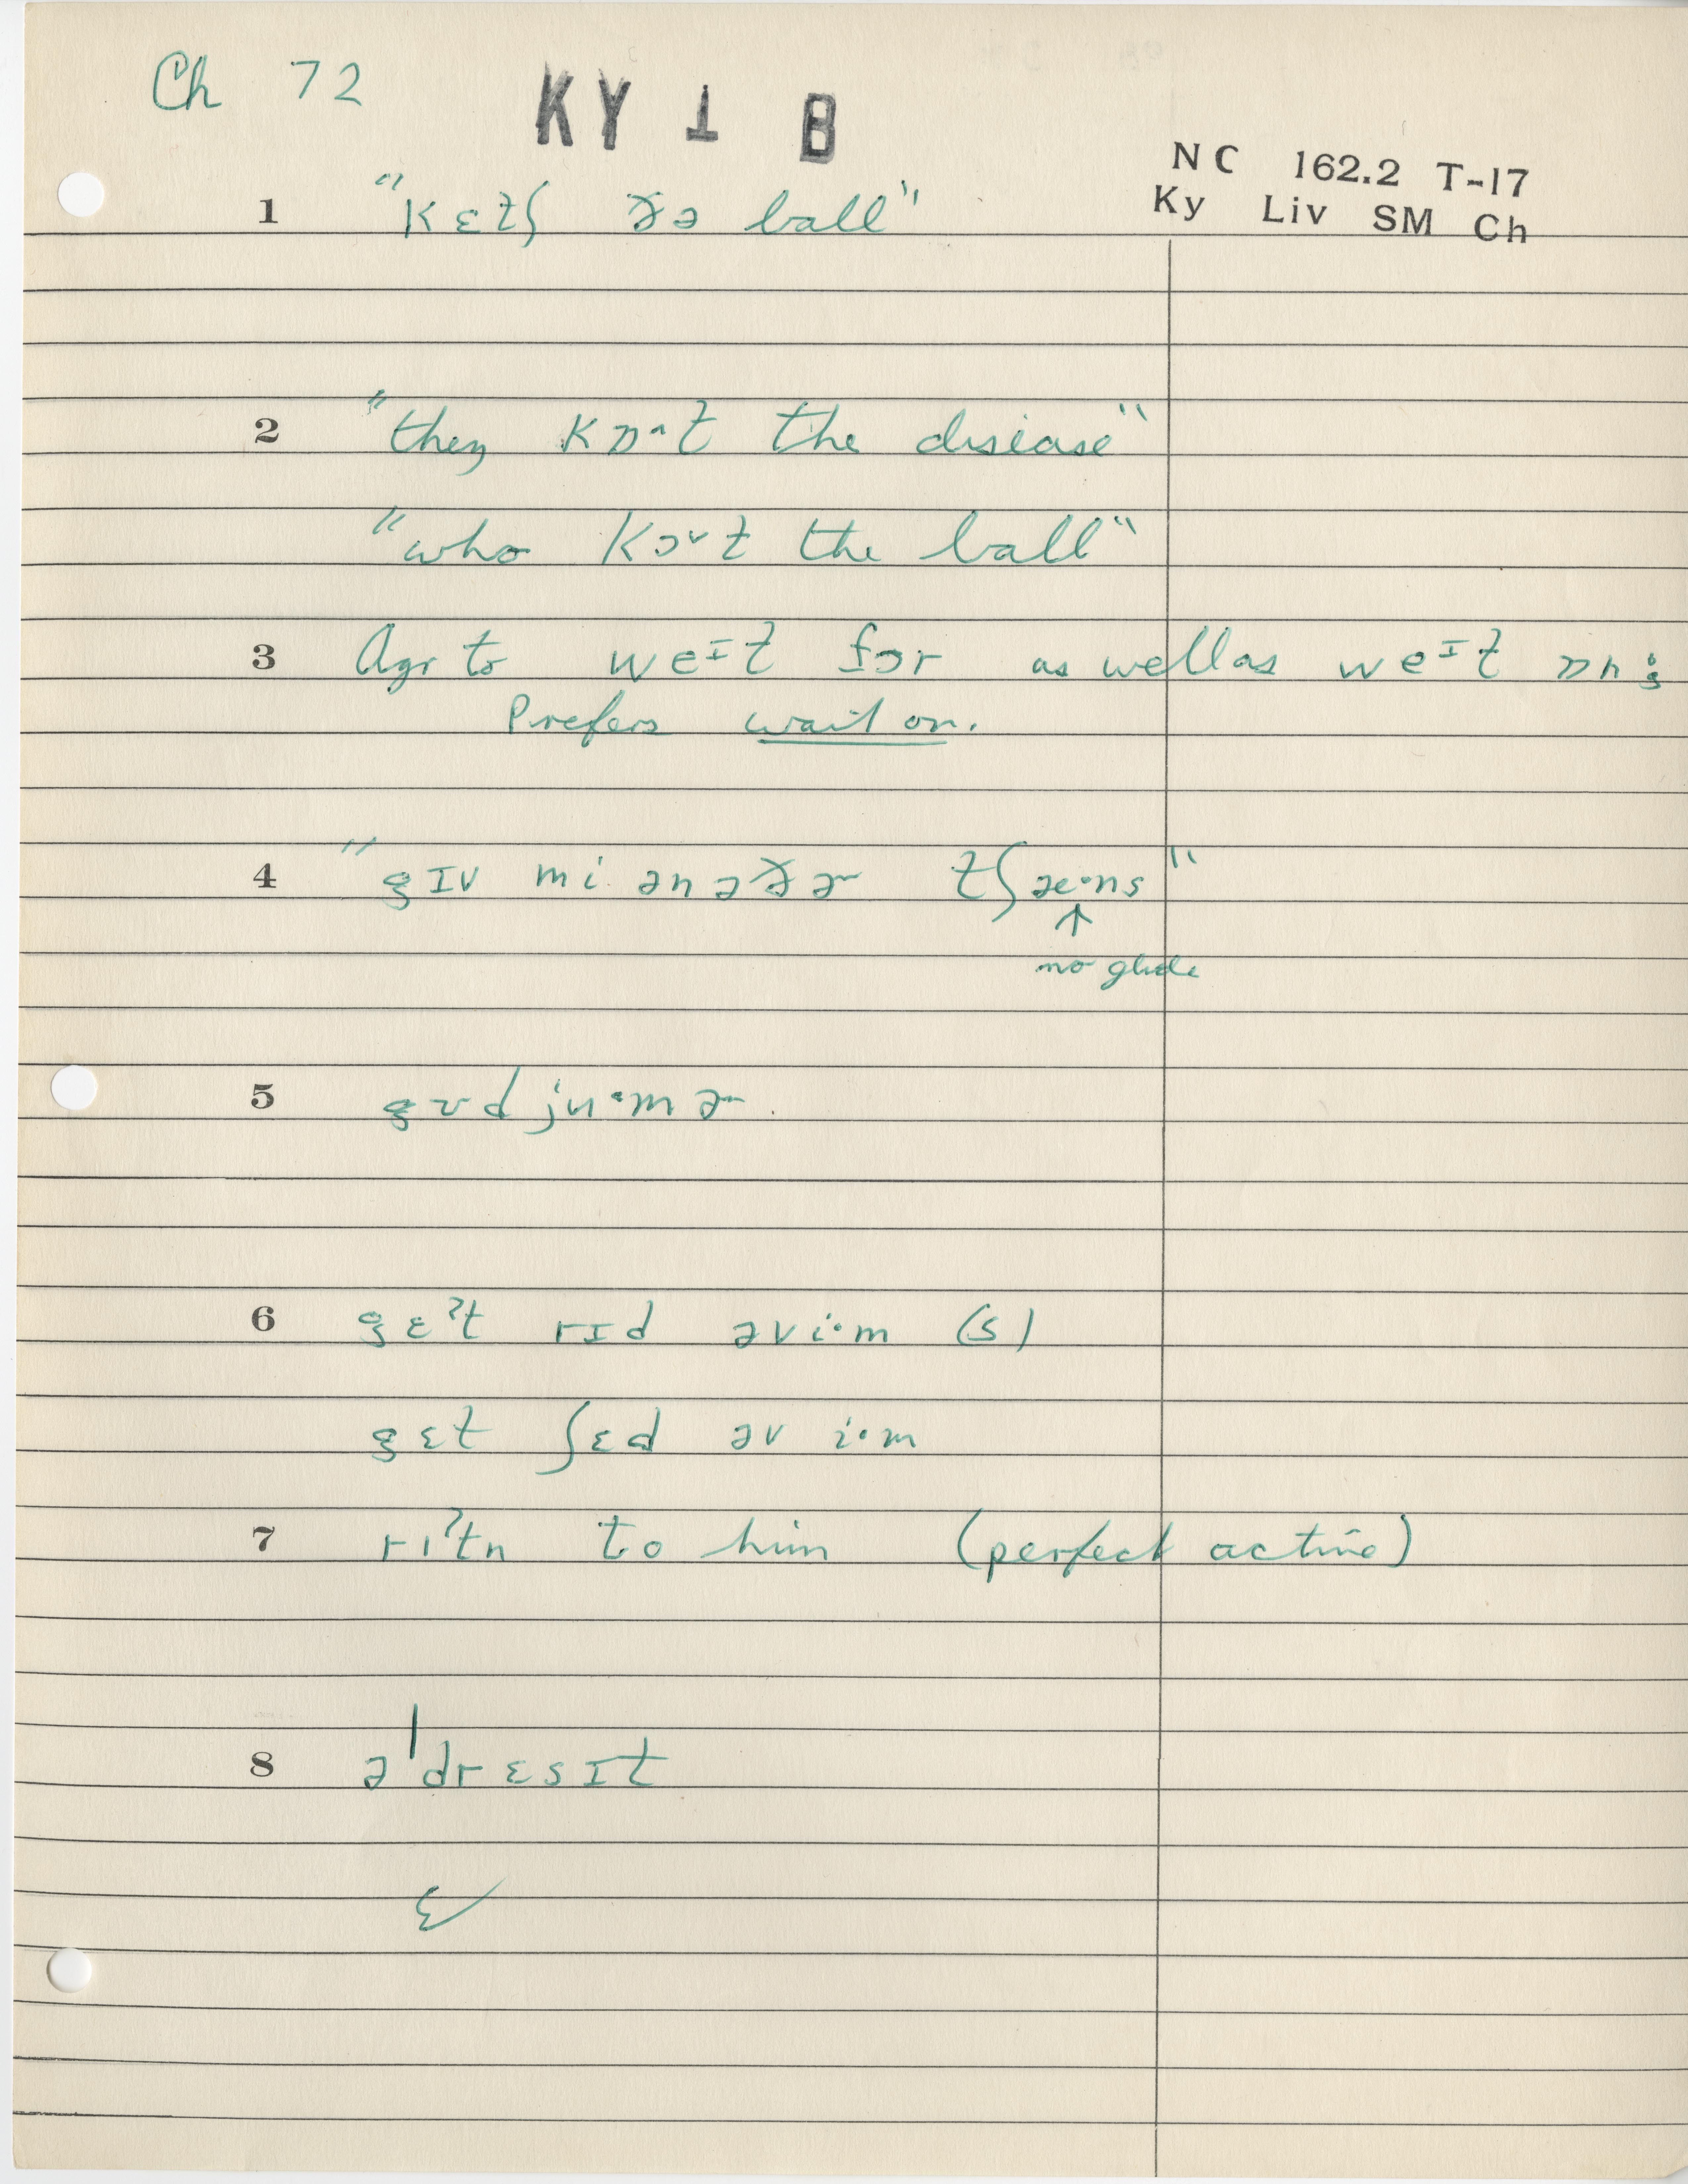 Ch 72
KY 1 B
NC 162.2 T-17
Ky Liv SM Ch
1 "kɛtʃ ðə ball"
2 "they kɒ^t the disease"
"who kɔ˅t the ball"
3 Agr to weɪt fɔr as well as weɪt ɒn;
Prefers wait on.
4 "gɪv mi ənəðɚ tʃæ·ns"
↑
no glide
5 gʊdju·mɚ
6 gɛˀt rɪd əvi·m (s)
gɛt ʃɛd əv i·m
7 rɪˀtn to him (perfect active)
8 əˈdrɛsɪt